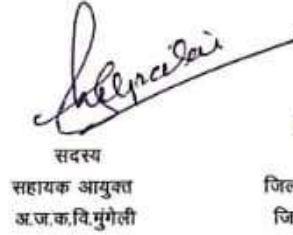 सदस्य
सहायक आयुक्त
अ.ज.क.वि.मुंगेली
जिल
जि